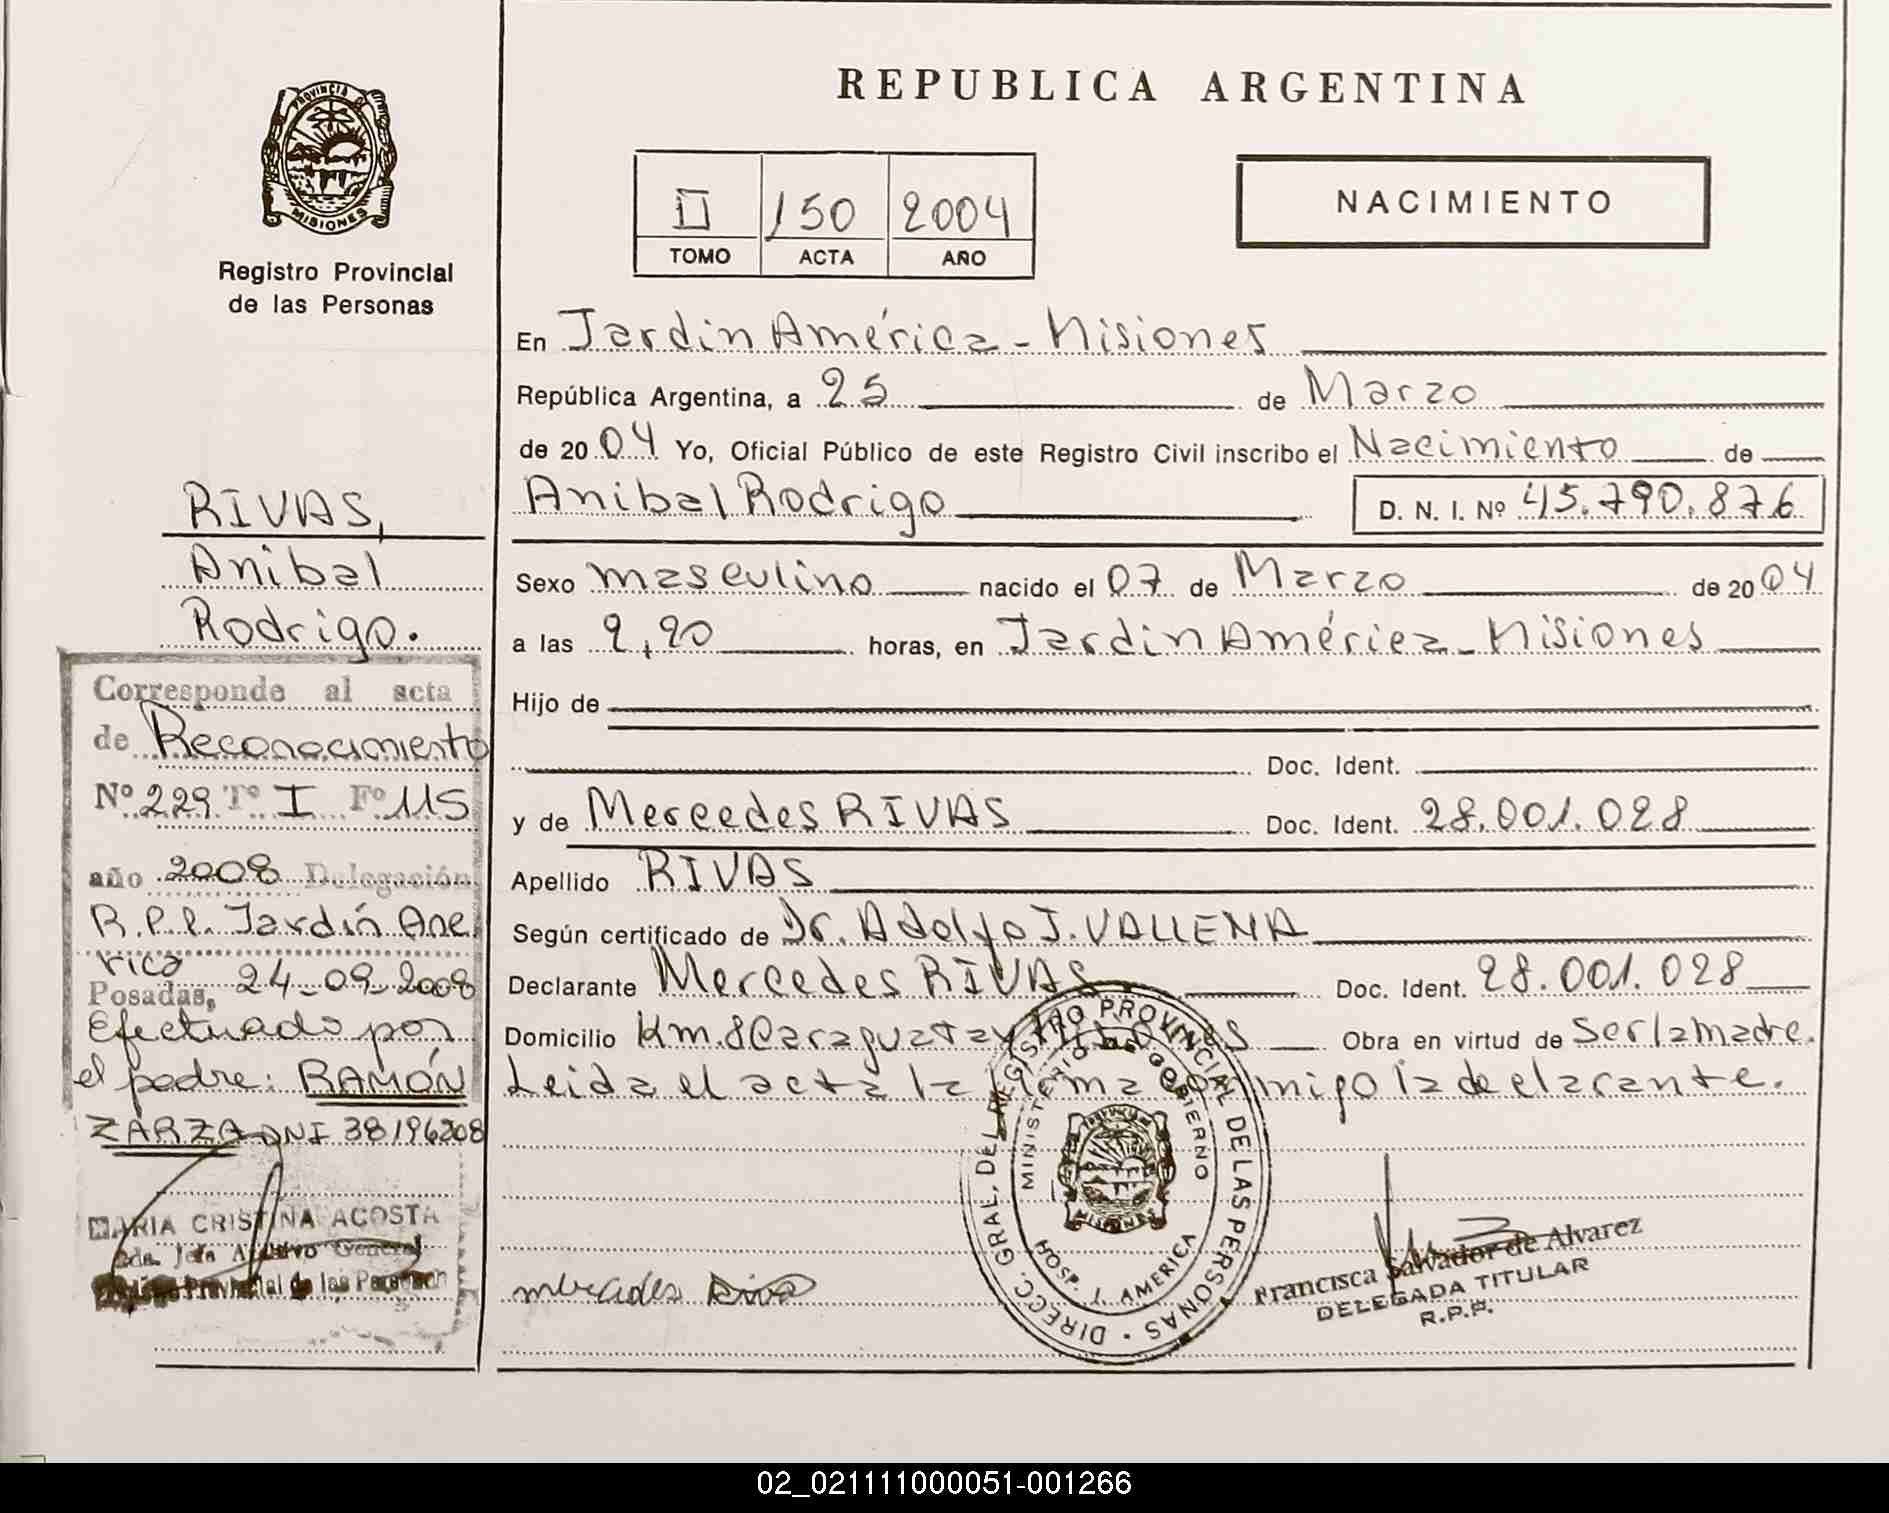 PROVINCIA DE
MISIONES
Registro Provincial
de las Personas
REPUBLICA ARGENTINA
II 150 2004
TOMO ACTA AÑO
NACIMIENTO
En Jardin América - Misiones
República Argentina, a 25 de Marzo
de 2004 Yo, Oficial Público de este Registro Civil inscribo el Nacimiento de
Anibal Rodrigo D. N. I. Nº 45.790.876
Sexo masculino nacido el 07 de Marzo de 2004
a las 2,20 horas, en Jardin América - Misiones
Hijo de
Doc. Ident.
y de Mercedes RIVAS Doc. Ident. 28.001.028
Apellido RIVAS
Según certificado de Dr. Adolfo J. VALLENA
Declarante Mercedes RIVAS Doc. Ident. 28.001.028
Domicilio Km. 8 Caraguatay Misiones Obra en virtud de Ser la madre.
Leida el acta la firma conmigo la declarante.
mercedes Riva
DIRECC. GRAL. DEL REGISTRO PROVINCIAL DE LAS PERSONAS
MINISTERIO DE GOBIERNO
MISIONES
HOSP. J. AMERICA
Francisca Salvador de Alvarez
DELEGADA TITULAR
R.P.P.
RIVAS,
Anibal
Rodrigo.
Corresponde al acta
de Reconocimiento
Nº 229 Tº I Fº 115
año 2008 Delegación
R.P.P. Jardín Ame
rica
Posadas, 24-09-2008
Efectuado por
el padre: RAMÓN
ZARZA DNI 38196208
MARIA CRISTINA ACOSTA
Jefa Archivo General
Provincial de las Personas
02_021111000051-001266